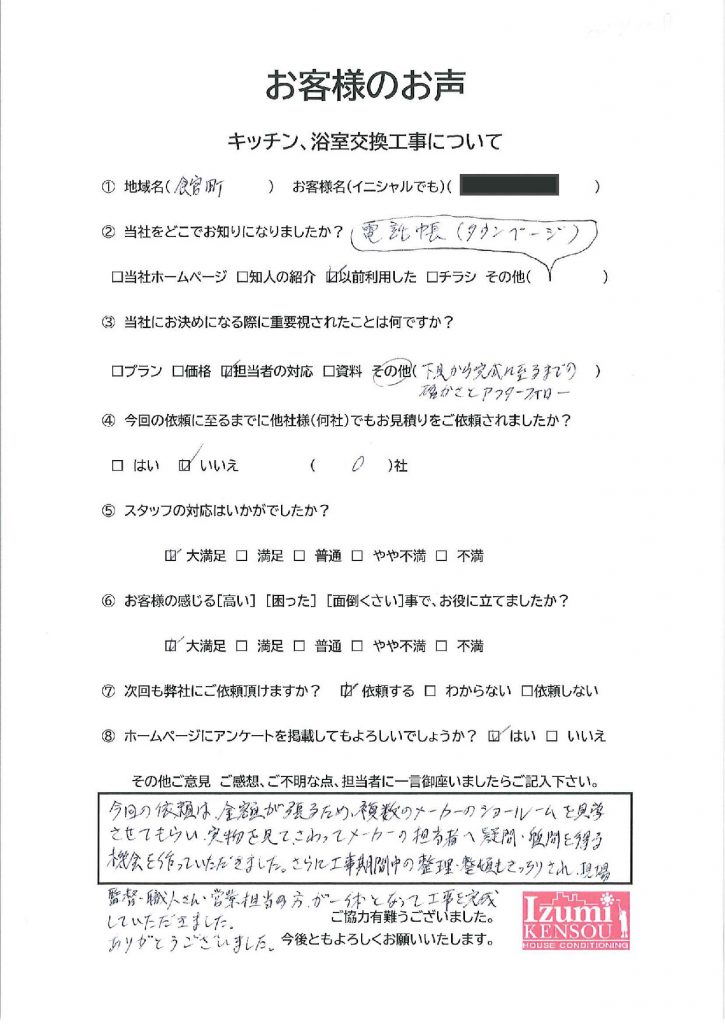 お客様のお声
キッチン、浴室交換工事について
① 地域名( 町 ) お客様名(イニシャルでも) ( )
② 当社をどこでお知りになりましたか? 電話帳(タウンページ)
□当社ホームページ □知人の紹介 ☑以前利用した □チラシ その他( )
③ 当社にお決めになる際に重要視されたことは何ですか?
□プラン □価格 ☑担当者の対応 □資料 その他(下見から完成に至るまでの )
確かさとアフターフォロー
④ 今回の依頼に至るまでに他社様(何社)でもお見積りをご依頼されましたか?
□ はい ☑ いいえ ( 0 )社
⑤ スタッフの対応はいかがでしたか?
☑ 大満足 □ 満足 □ 普通 □ やや不満 □ 不満
⑥ お客様の感じる[高い] [困った] [面倒くさい]事で、お役に立てましたか?
☑ 大満足 □ 満足 □ 普通 □ やや不満 □ 不満
⑦ 次回も弊社にご依頼頂けますか? ☑ 依頼する □ わからない □依頼しない
⑧ ホームページにアンケートを掲載してもよろしいでしょうか? ☑ はい □ いいえ
その他ご意見 ご感想、ご不明な点、担当者に一言御座いましたらご記入下さい。
今回の依頼は、金額が張るため、複数のメーカーのショールームを見学
させてもらい、実物を見てさわってメーカーの担当者へ疑問・質問を得る
機会を作っていただきました。さらに工事期間中の整理・整頓もきっちりされ、現場
監督・職人さん・営業担当の方、が一体となって工事を完成
していただきました。
ありがとうございました。
ご協力有難うございました。
今後ともよろしくお願いいたします。
Izumi
KENSOU
HOUSE CONDITIONING